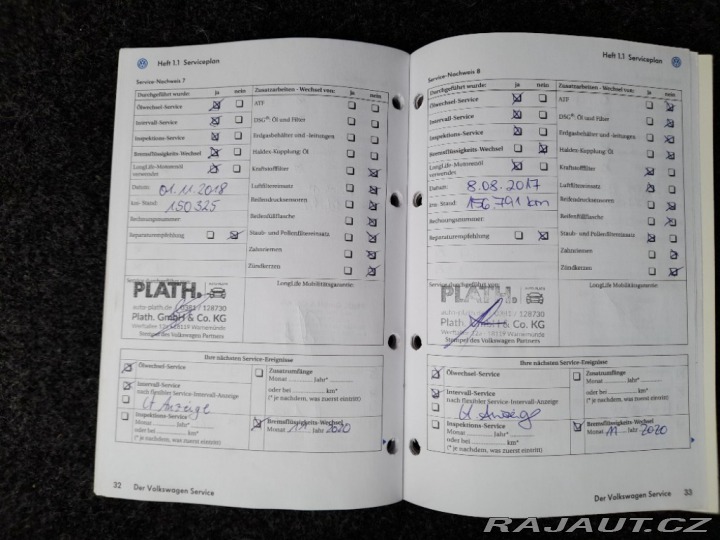 Heft 1.1 Serviceplan
Service-Nachweis 7
Durchgeführt wurde: ja nein
Ölwechsel-Service
Intervall-Service
Inspektions-Service
Bremsflüssigkeits-Wechsel
LongLife-Motorenöl
verwendet
Datum: 01.11.2018
km-Stand: 150325
Rechnungsnummer:
Reparaturempfehlung
Zusatzarbeiten - Wechsel von: ja nein
ATF
DSG®: Öl und Filter
Erdgasbehälter und -leitungen
Haldex-Kupplung: Öl
Kraftstofffilter
Luftfiltereinsatz
Reifendrucksensoren
Reifenfüllflasche
Staub- und Pollenfiltereinsatz
Zahnriemen
Zündkerzen
Service durchgeführt
PLATH.
auto-plath.de / 0381 / 128730
Plath. GmbH & Co. KG
Werftallee 12a 18119 Warnemünde
Stempel des Volkswagen Partners
LongLife Mobilitätsgarantie:
Ihre nächsten Service-Ereignisse
Ölwechsel-Service
Intervall-Service
nach flexibler Service-Intervall-Anzeige
Lt Anzeige
Inspektions-Service
Monat Jahr*
oder bei km*
(* je nachdem, was zuerst eintritt)
Zusatzumfänge
Monat Jahr*
oder bei km*
(* je nachdem, was zuerst eintritt)
Bremsflüssigkeits-Wechsel
Monat 11 Jahr 2020
32 Der Volkswagen Service
Heft 1.1 Serviceplan
Service-Nachweis 8
Durchgeführt wurde: ja nein
Ölwechsel-Service
Intervall-Service
Inspektions-Service
Bremsflüssigkeits-Wechsel
LongLife-Motorenöl
verwendet
Datum: 8.08.2017
km-Stand: 156 791 km
Rechnungsnummer:
Reparaturempfehlung
Zusatzarbeiten - Wechsel von: ja nein
ATF
DSG®: Öl und Filter
Erdgasbehälter und -leitungen
Haldex-Kupplung: Öl
Kraftstofffilter
Luftfiltereinsatz
Reifendrucksensoren
Reifenfüllflasche
Staub- und Pollenfiltereinsatz
Zahnriemen
Zündkerzen
Service durchgeführt
PLATH.
auto-plath.de / 0381 / 128730
Plath. GmbH & Co. KG
Werftallee 12a 18119 Warnemünde
Stempel des Volkswagen Partners
LongLife Mobilitätsgarantie:
Ihre nächsten Service-Ereignisse
Ölwechsel-Service
Intervall-Service
nach flexibler Service-Intervall-Anzeige
Lt Anzeige
Inspektions-Service
Monat Jahr*
oder bei km*
(* je nachdem, was zuerst eintritt)
Zusatzumfänge
Monat Jahr*
oder bei km*
(* je nachdem, was zuerst eintritt)
Bremsflüssigkeits-Wechsel
Monat 11 Jahr 2020
Der Volkswagen Service 33
RAJAUT.CZ